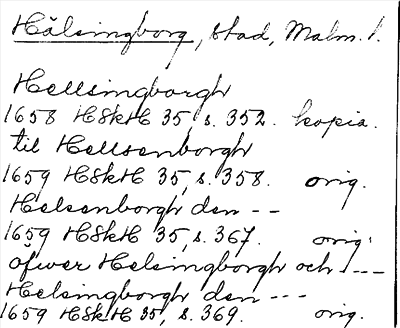 Hälsingborg, stad, Malm. l.
Hellsingborgh
1658 HSkH 35, s. 352. kopia.
til Hellsenborgh
1659 HSkH 35, s. 358. orig.
Helsenborgh den --
1659 HSkH 35, s. 367. orig.
öfwer Helsingborgh och ---
Helsingborgh den ---
1659 HSkH 35, s. 369. orig.